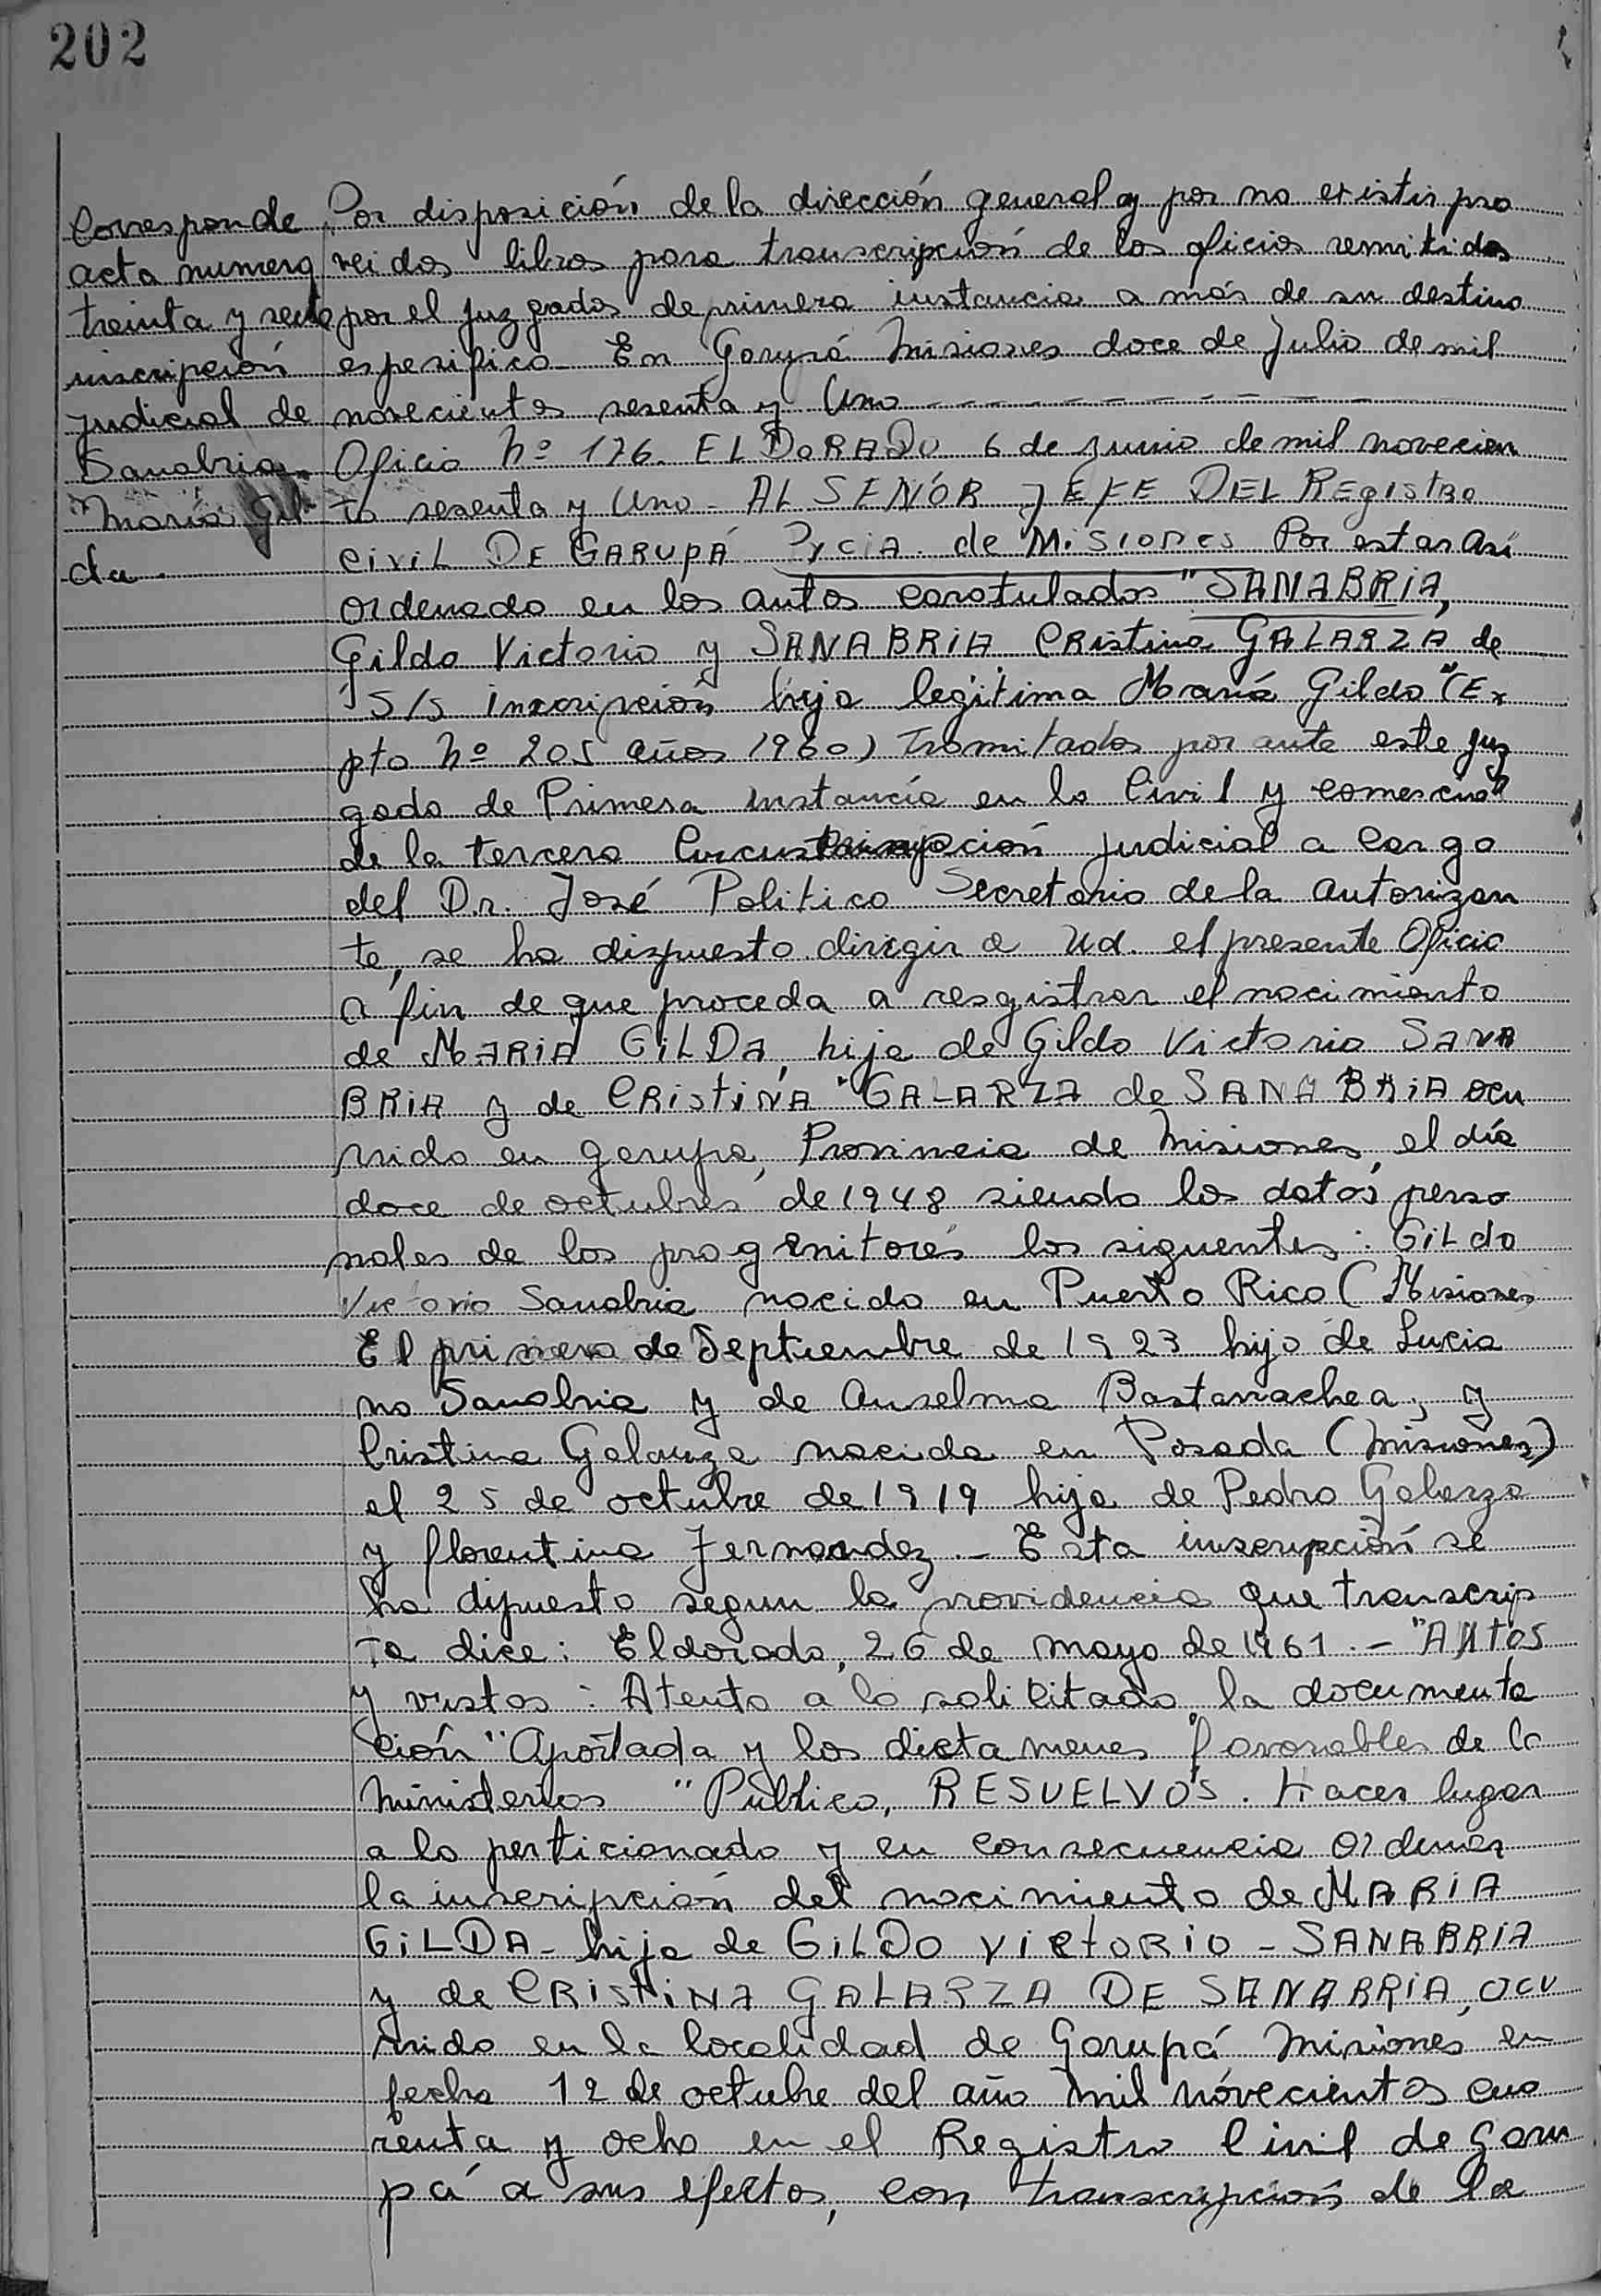 202
Corresponde
acta numero
treinta y seite
inscripción
judicial de
Sanabria
María Gil
da.
Por disposición de la dirección general y por no existir pro
veidos libros para transcripción de los oficios remitidos
por el juzgados de primera instancia a más de su destino
espesifico- En Garupá Misiones doce de Julio de mil
novecientos sesenta y Uno
Oficio Nº 176. ELDORADO 6 de junio de mil novecien
to sesenta y Uno - AL SEÑOR JEFE DEL REgistro
civiL DE GARUPÁ Pvcia. de MiSIONes Por estar Así
ordenado en los autos caratulados "SANABRIA,
Gildo Victorio y SANABRIA CRistina GALARZA de
S/S Inscripción hija legítima María Gilda" (Ex
pto Nº 205 años 1960) Tramitados por ante este juz
gado de Primera Instancia en lo Civil y comercial
de la tercera judicial a cargo
del D.r. José Politico Secretaria de la autorizan
te, se ha dizpuesto dirigir a Ud. el presente Oficio
a fin de que proceda a resgistrar el nacimiento
de MARIA GiLDA, hija de Gildo Victorio SANA
BRiA y de CRistiNA GALARZA de SANABRiA ocu
rrido en garupa, Provincia de Misiones, el día
doce de octubres de 1948 siendo los datos perso
nales de los progenitores los siguentes: GiLdo
Victorio Sanabria nacido en Puerto Rico (Misiones
El primero de Septiembre de 1923 hijo de Lucia
no Sanabria y de Anselma Bastarrachea, y
Cristina Galarza nacida en Posada (Misiones)
el 25 de octubre de 1919 hija de Pedro Galarza
y florentina Fernandez.- Esta inscripción se
ha dipuesto segun la providencia que transcrip
ta dice: Eldorado, 26 de mayo de 1961.- "AUTOS
y vistos: Atento a lo solicitado la documenta
ción "Aportada y los dictamenes favorables de lo
Ministerios "Público, RESUELVOS. Hacer lugar
a lo perticionado y en consecuencia Ordenar
la inscripción del nacimiento de MARIA
GiLDA- hija de GiLDO VIctORiO - SANABRIA
y de CRistiNA GALARZA DE SANABRIA, ocu
rrido en la localidad de Garupá Misiones en
fecha 12 de octubre del año mil novecientos cua
renta y ocho en el Registro Civil de Garu
pá a sus efectos, con transcripción de la